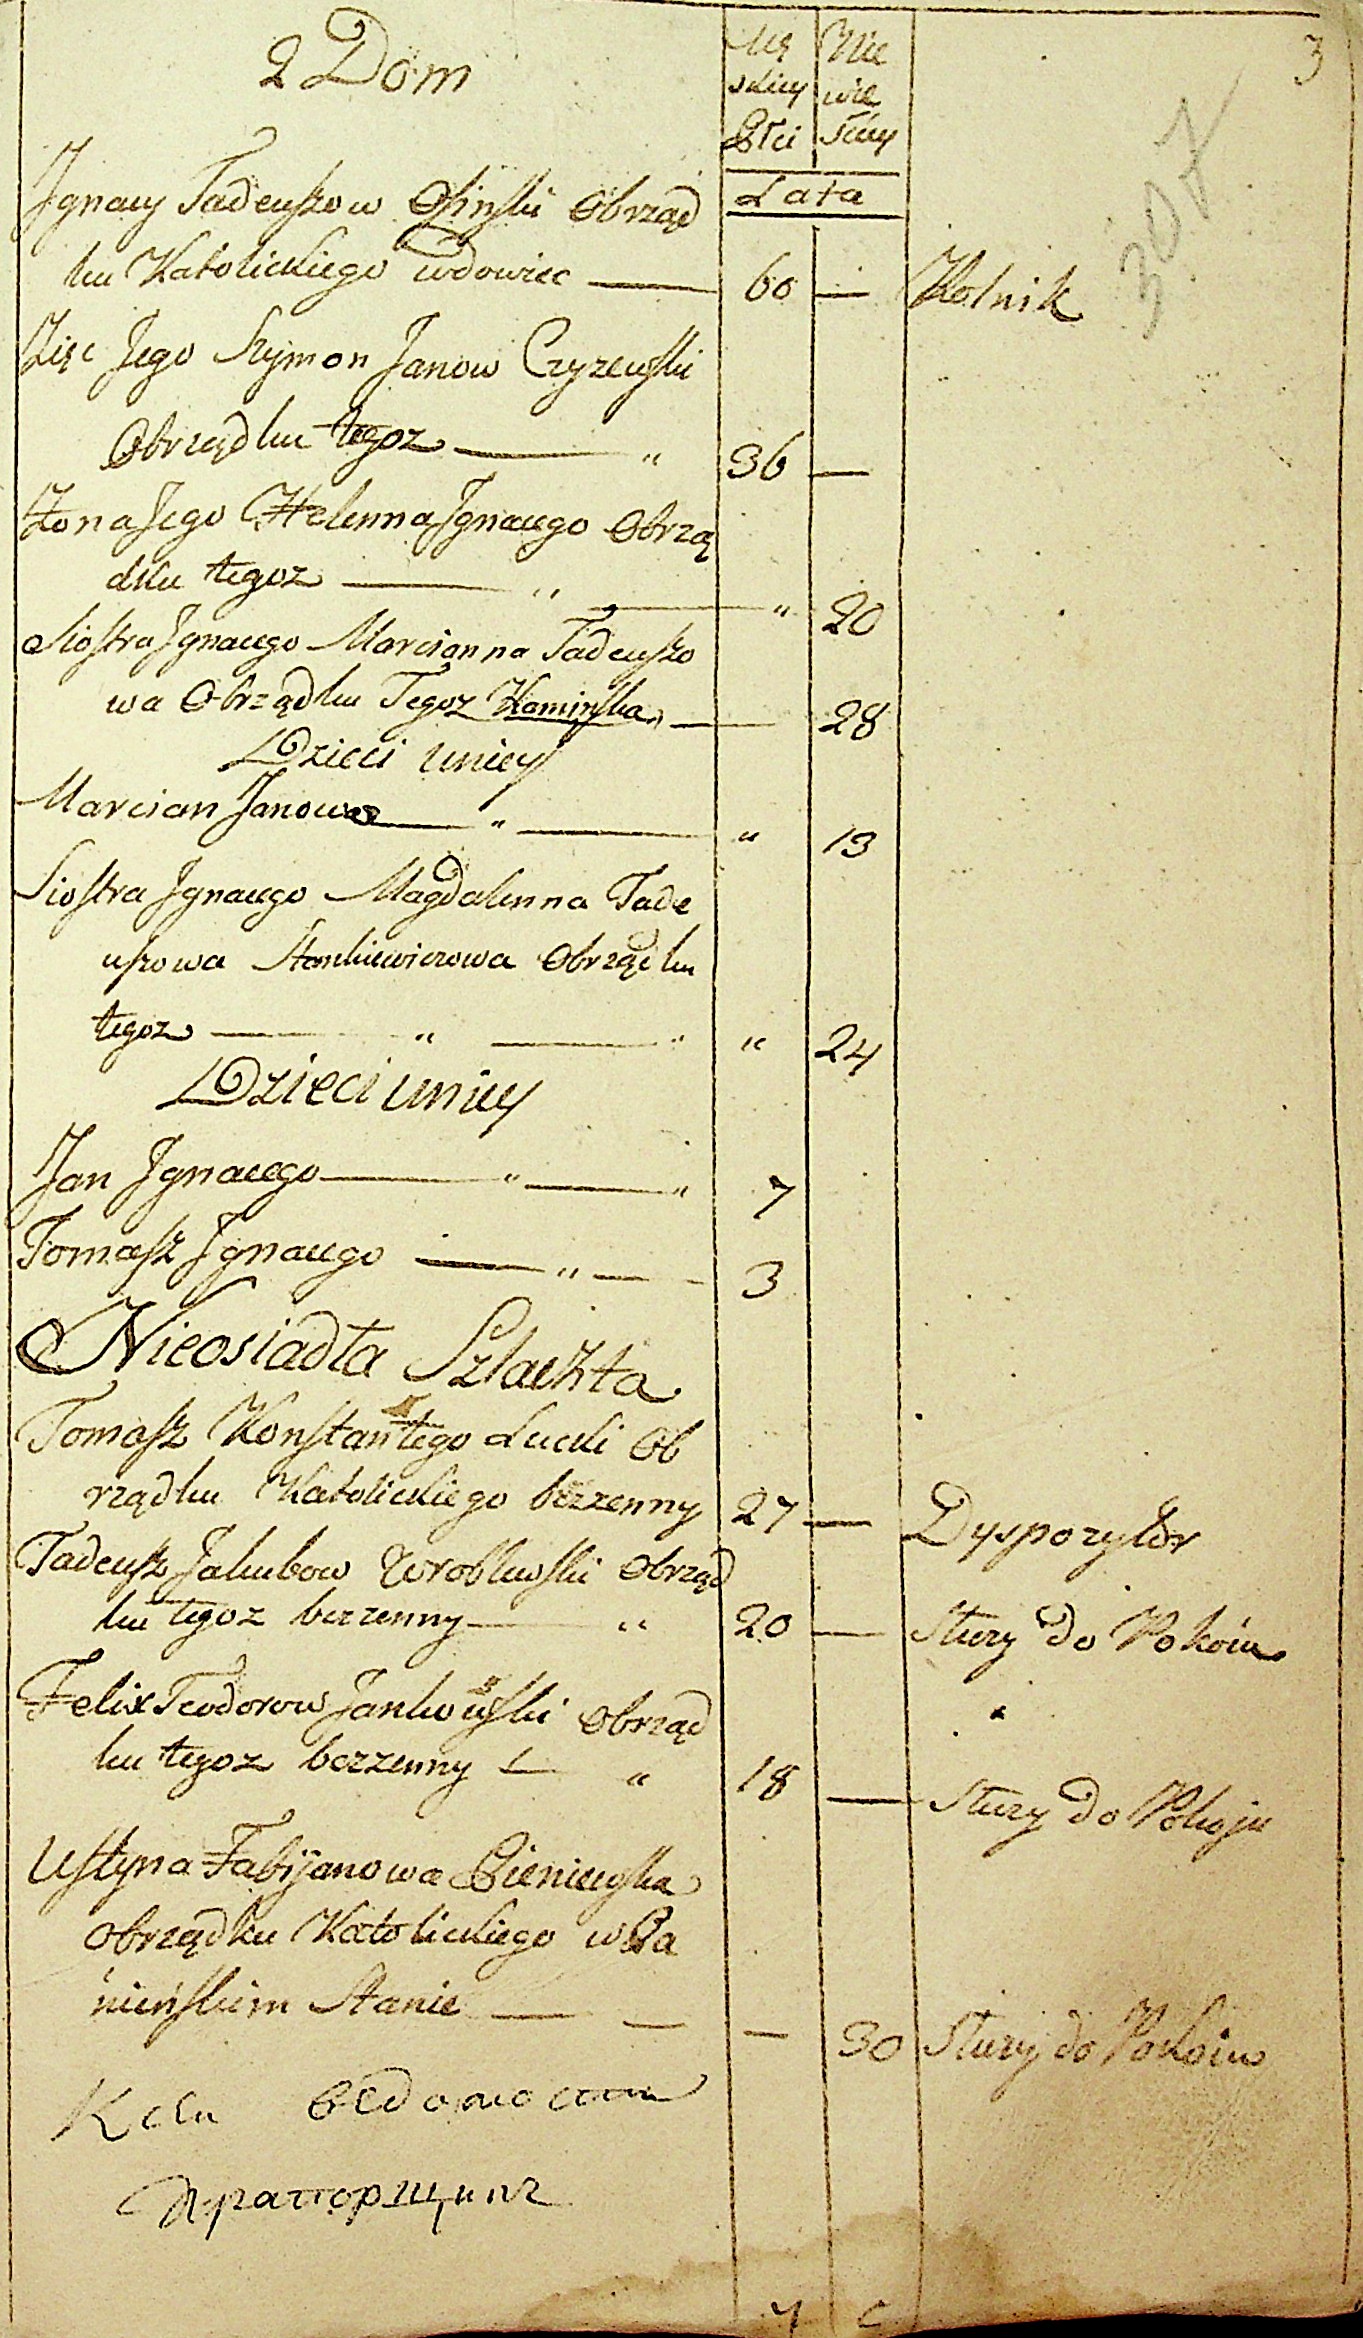 3
307
2 Dom
Mę Nie
skiey wie
Płci sciey
Lata
Jgnacy Tadeuszow Osinski Obrząd
ku Katolickiego wdowiec — 60 — Rolnik
Zięc Jego Szymon Janow Czyzewski
Obrządku tegoz — " 36 —
Zona Jego Helenna Jgnacego Obrzą
dku tegoz — " — " 20
Siostra Jgnacego Marcianna Tadeuszo
wa Obrządku Tegoz Kaminska — 28
Dzieci Unicy
Marcian Janowa — " — " 13
Siostra Jgnacego Magdalenna Tade
uszowa Stankiewiczowa Obrządku
tegoz — " — " " 24
Dzieci Unicy
Jan Jgnacego — " — " 7
Tomasz Jgnacego — " — - 3
Nieosiadła Szlachta
Tomasz Konstantego Łucki Ob
rządku Katolickiego bezzenny 27 — Dyspozytor
Tadeusz Jakubow Wroblewski Obrząd
ku tegoz bezzenny — " 20 — Słuzy do Pokoiu
Felix Teodorow Jankowski Obrząd
ku tegoz bezzenny — " 18 — Słuzy do Pokoju
Ustyna Fabijanowa Bieniewska
Obrządku Katolickiego w Pa
nieńskim Stanie — — — 30 Słuzy do Pokoiu
К сей ведомости
Прапорщикъ